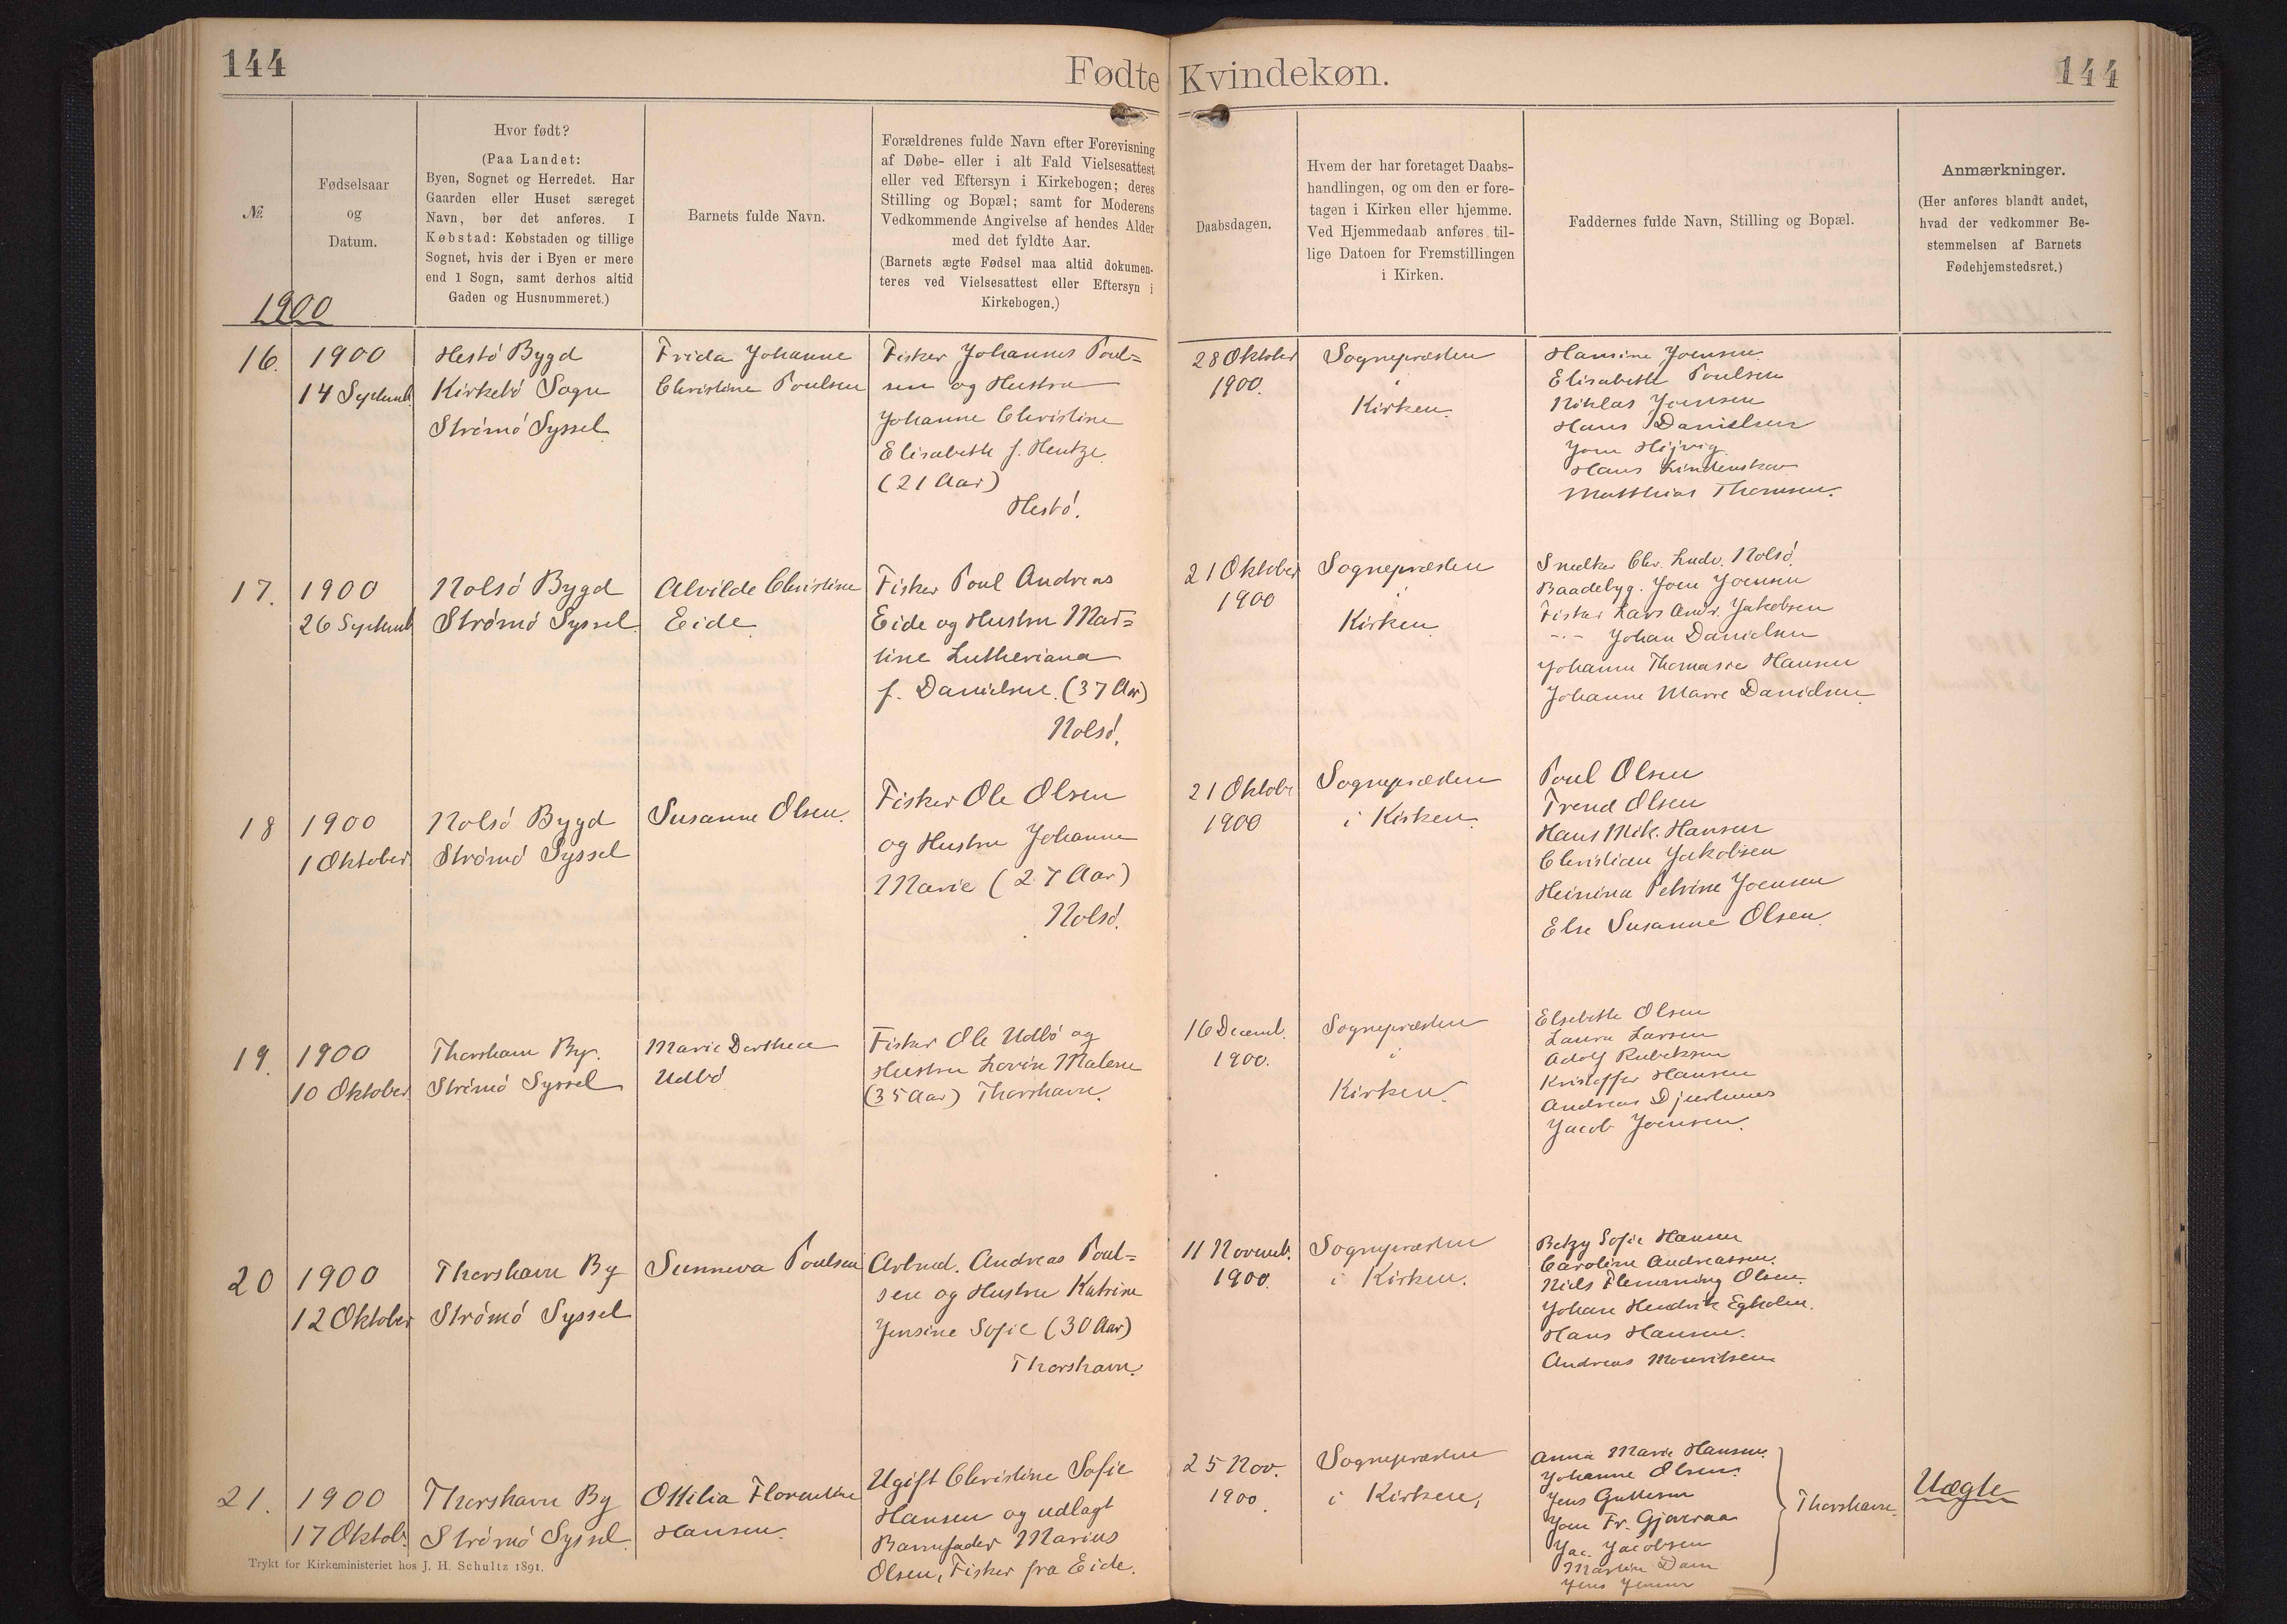 144
Fødte Kvindekøn.
144
№
Fødselsaar
og
Datum.
Hvor født?
(Paa Landet:
Byen, Sognet og Herredet. Har
Gaarden eller Huset særeget
Navn, bør det anføres. I
Købstad: Købstaden og tillige
Sognet, hvis der i Byen er mere
end 1 Sogn, samt derhos altid
Gaden og Husnummeret.)
Barnets fulde Navn.
Forældrenes fulde Navn efter Forevisning
af Døbe- eller i alt Fald Vielsesattest
eller ved Eftersyn i Kirkebogen; deres
Stilling og Bopæl; samt for Moderens
Vedkommende Angivelse af hendes Alder
med det fyldte Aar.
(Barnets ægte Fødsel maa altid dokumen-
teres ved Vielsesattest eller Eftersyn i
Kirkebogen.)
Daabsdagen.
Hvem der har foretaget Daabs-
handlingen, og om den er fore-
tagen i Kirken eller hjemme.
Ved Hjemmedaab anføres til-
lige Datoen for Fremstillingen
i Kirken.
Faddernes fulde Navn, Stilling og Bopæl.
Anmærkninger.
(Her anføres blandt andet,
hvad der vedkommer Be-
stemmelsen af Barnets
Fødehjemstedsret.)
1900
16.
1900
14 Septemb.
Hestö Bygd
Kirkebö Sogn
Strömö Syssel
Frida Johanne
Christine Poulsen
Fisker Johannes Poul=
sen og Hustru
Johanne Christine
Elisabeth f. Hentze
(21 Aar)
Hestö.
28 Oktober
1900.
Sognepræsten
i
Kirken.
Hansine Joensen
Elisabeth Poulsen
Niklas Joensen
Hans Danielsen
Joen
Hans Lindenskov
Matthias Thomsen.
17.
1900
26 Septemb
Nolsö Bygd
Strömö Syssel
Alvilde Christine
Eide
Fisker Poul Andreas
Eide og Hustru Mar=
tine Lutheriana
f. Danielsen. (37 Aar)
Nolsö.
21 Oktober
1900
Sognepræsten
i
Kirken
Snedker Chr. Ludv. Nolsö
Baadebyg. Joen Joensen
Fisker Lars Andr. Jakobsen
-"- Johan Danielsen
Johanne Thomasia Hansen
Johanne Marie Danielsen
18
1900
1 Oktober
Nolsö Bygd
Strömö Syssel
Susanne Olsen.
Fisker Ole Olsen
og Hustru Johanne
Marie (27 Aar)
Nolsö.
21 Oktobr
1900
Sognepræsten
i Kirken.
Poul Olsen
Trend Olsen
Hans Mik. Hansen
Christian Jakobsen
Heinina Petrine Joensen
Else Susanne Olsen
19.
1900
10 Oktober
Thorshavn By.
Strömö Syssel
Marie Dorthea
Udbö
Fisker Ole Udbö og
Hustru Lovise Malene
(35 Aar) Thorshavn.
16 Decemb.
1900.
Sognepræsten
i
Kirken.
Elsebeth Olsen
Laura Larsen
Adolf Rubeksen
Kristoffer Hansen
Andreas Djurhuus
Jacob Joensen.
20
1900
12 Oktober
Thorshavn By
Strömö Syssel
Sunneva Poulsen
Arbmd. Andreas Poul=
sen og Hustru Katrine
Jensine Sofie (30 Aar)
Thorshavn.
11 Novemb.
1900.
Sognepræsten
i Kirken.
Betzy Sofie Hansen
Caroline Andreassen.
Niels Flemming Olsen.
Johan Hendrik Egholm.
Hans Hansen.
Andreas Mouritsen
21.
1900
17 Oktob.
Thorshavn By
Strömö Syssel.
Ottilia Florentine
Hansen.
Ugift Christine Sofie
Hansen og udlagt
Barnefader Marius
Olsen, Fisker fra Eide.
25 Nov.
1900.
Sognepræsten
i Kirken,
Anna Marie Hansen.
Johanne Olsen.
Jens Guttesen
Joen Fr. Gjaveraa
Jac. Jacobsen
Martin Dam
Jens Jensen
Thorshavn.
Uægte
Trykt for Kirkeministeriet hos J. H. Schultz 1891.